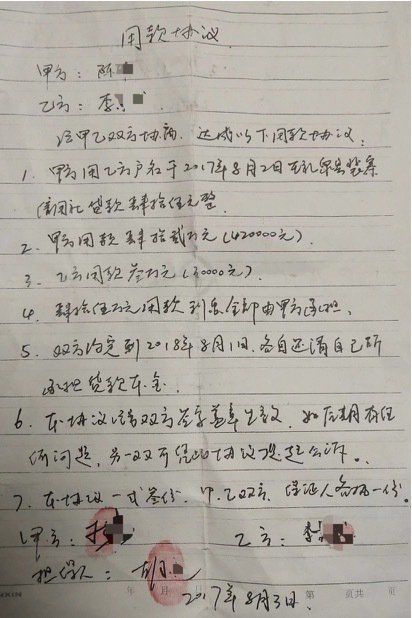 用款协议
甲方：陈
乙方：李
经甲乙双方协商，达成以下用款协议：
1、甲方用乙方户名于2017年8月2日在礼泉县
信用社贷款肆拾伍元整
2、甲方用款肆拾贰万元（420000元）
3、乙方用款叁万元（30000元）
4、肆拾伍万元用款利息全部由甲方承担、
5、双方约定到2018年8月1日，各自还清自己所
承担贷款本金、
6、本协议经双方签字盖章生效，如后期有任
何问题，另一双可凭此协议提起公诉。
7、本协议一式叁份，甲、乙双方、保证人各执一份。
甲方：
乙方：李
担保人：胡
年 月 第 页共 页
2017年8月3日